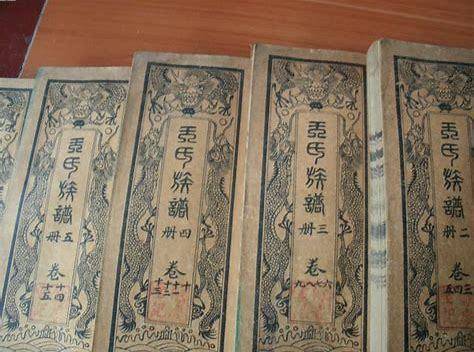 王氏族譜
二册
卷
三四五
王氏族譜
三册
卷
六七八九
王氏族譜
四册
卷
十十一十二十三
王氏族譜
五册
卷
十四十五